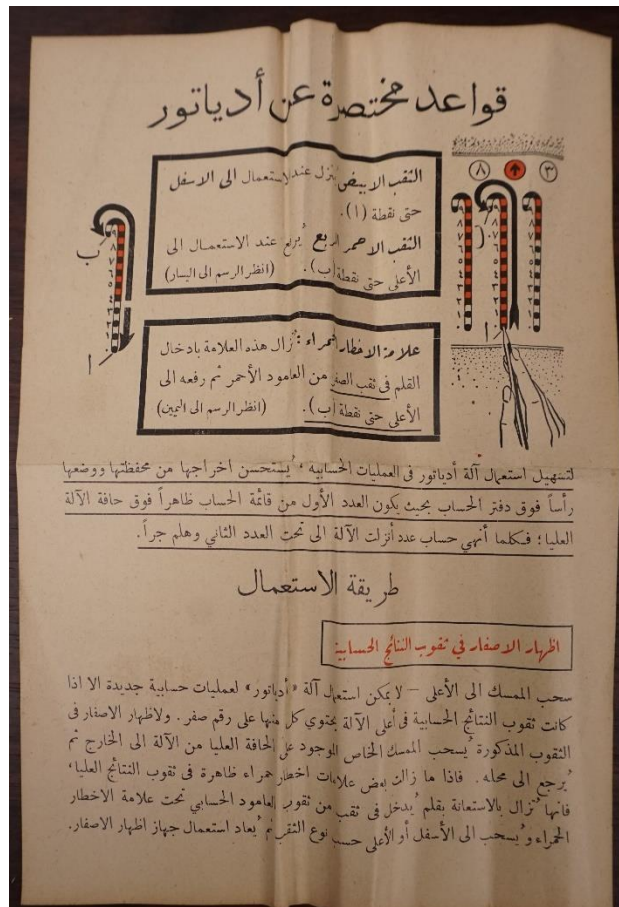 قواعد مختصرة عن أدياتور
الثقب الابيض يُنزل عند الاستعمال الى الاسفل
حتى نقطة (ا).
الثقب الاحمر المربع يُرفع عند الاستعمال الى
الأعلى حتى نقطة (ب). (انظر الرسم الى اليسار)
٨ ٣
ب
ب
ا
ا
علامة الاخطار الحمراء: تزال هذه العلامة بادخال
القلم فى ثقب الصفر من العامود الأحمر ثم رفعه الى
الأعلى حتى نقطة (ب). (انظر الرسم الى اليمين)
لتسهيل استعمال آلة أدياتور فى العمليات الحسابيه، يُستحسن اخراجها من محفظتها ووضعها
رأساً فوق دفتر الحساب بحيث يكون العدد الأول من قائمة الحساب ظاهراً فوق حافة الآلة
العليا؛ فكلما أنهي حساب عدد أنزلت الآلة الى تحت العدد الثاني وهلم جراً.
طريقة الاستعمال
اظهار الاصفار في ثقوب النتائج الحسابية
سحب الممسك الى الأعلى – لا يمكن استعمال آلة «أدياتور» لعمليات حسابية جديدة الا اذا
كانت ثقوب النتائج الحسابية فى أعلى الآلة يحتوي كل منها على رقم صفر. ولاظهار الاصفار فى
الثقوب المذكورة يُسحب الممسك الخاص الموجود على الحافة العليا من الآلة الى الخارج ثم
يُرجع الى محله. فاذا ما زالت بعض علامات اخطار حمراء ظاهرة فى ثقوب النتائج العليا،
فانها تُزال بالاستعانة بقلم يُدخل فى ثقب من ثقوب العامود الحسابي تحت علامة الاخطار
الحمراء ويُسحب الى الأسفل أو الأعلى حسب نوع الثقب ثم يُعاد استعمال جهاز اظهار الاصفار.